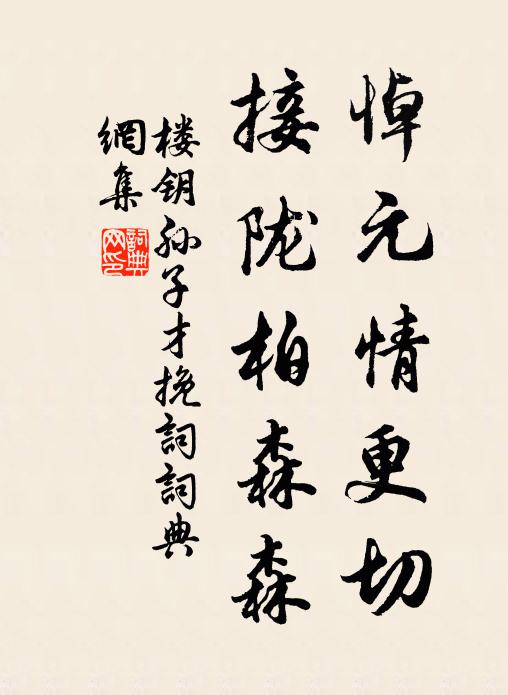 悼元情更切
接陇柏森森
楼钥孙子才挽詞詞典
網集
詞典
网印